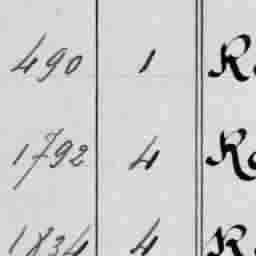 490 1
1792 4
1834 4